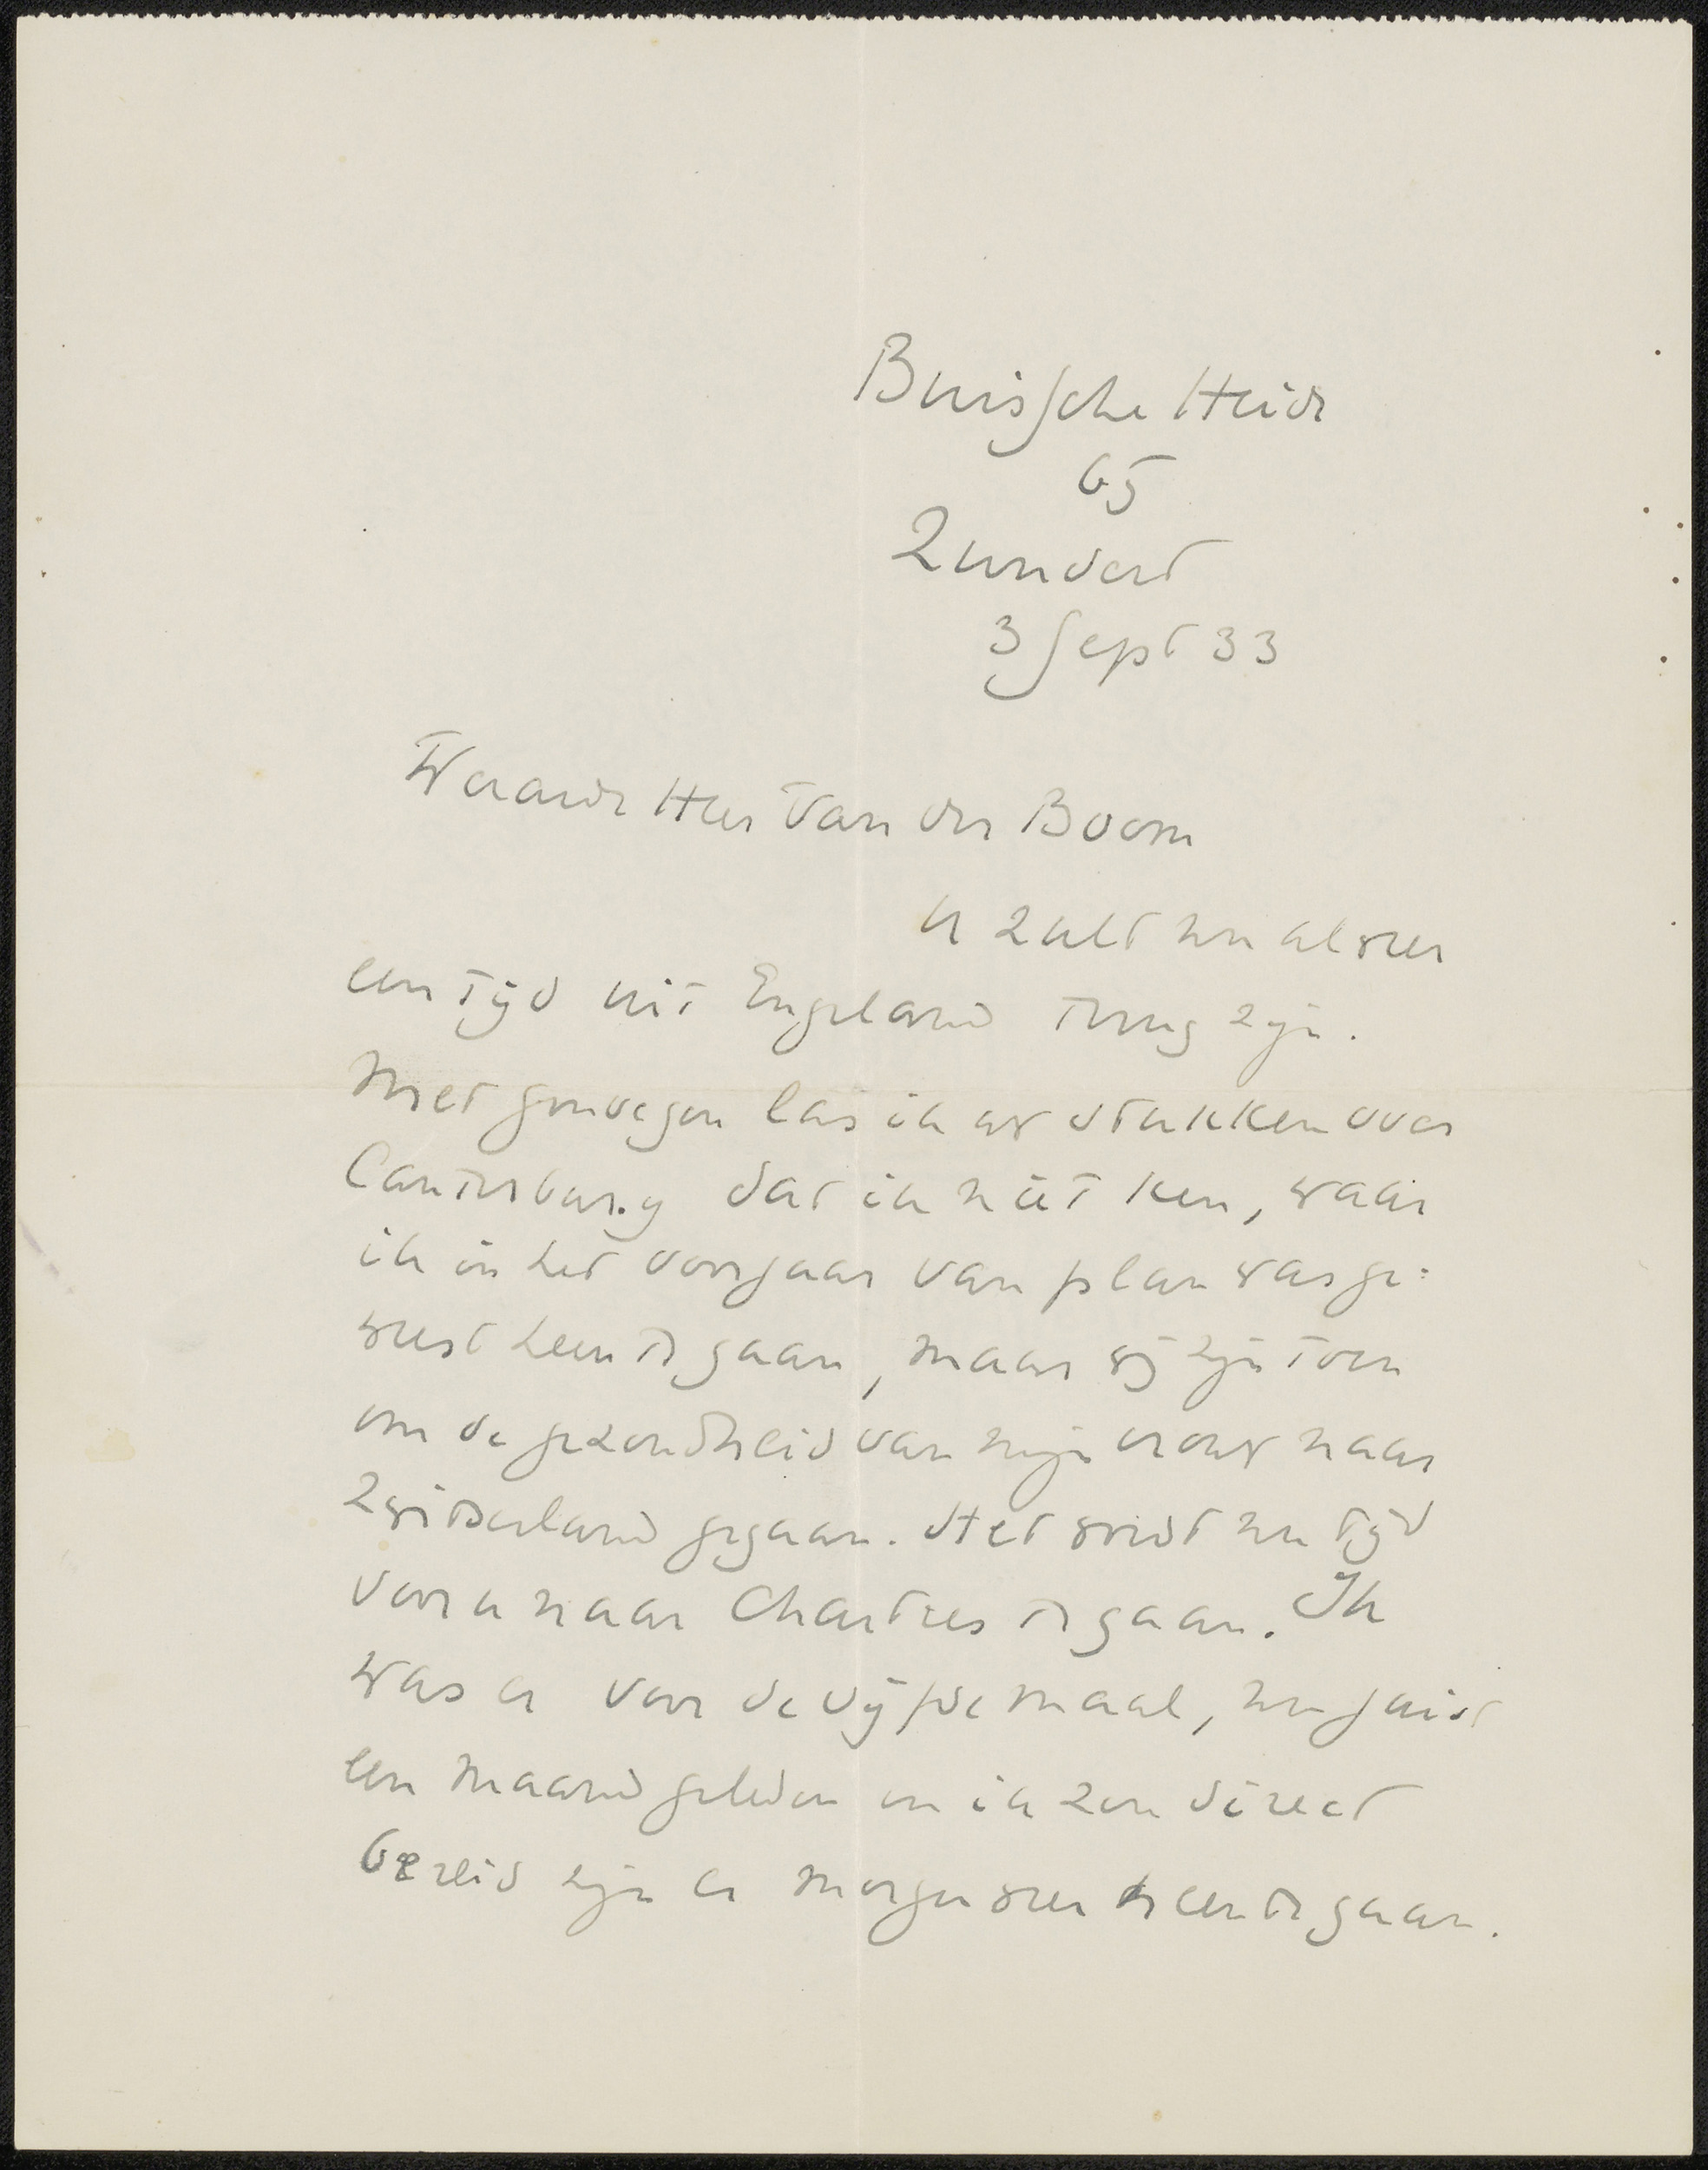 Buissche Heide
65
Zundert
3 Sept 33
Waarde Heer Van der Boom
U zult nu al weer
een tijd uit Engeland terug zijn.
Met genoegen las ik uw stukken over
Canterbury dat ik niet ken, waar
ik in het voorjaar van plan was ge=
weest heen te gaan, maar wij zijn toen
om de gezondheid van mijn vrouw naar
Zwitserland gegaan. Het wordt nu tijd
voor u naar Chartres te gaan. Ik
was er voor de vijfde maal, nu juist
een maand geleden en ik zou direct
bereid zijn er morgen weer heen te gaan.